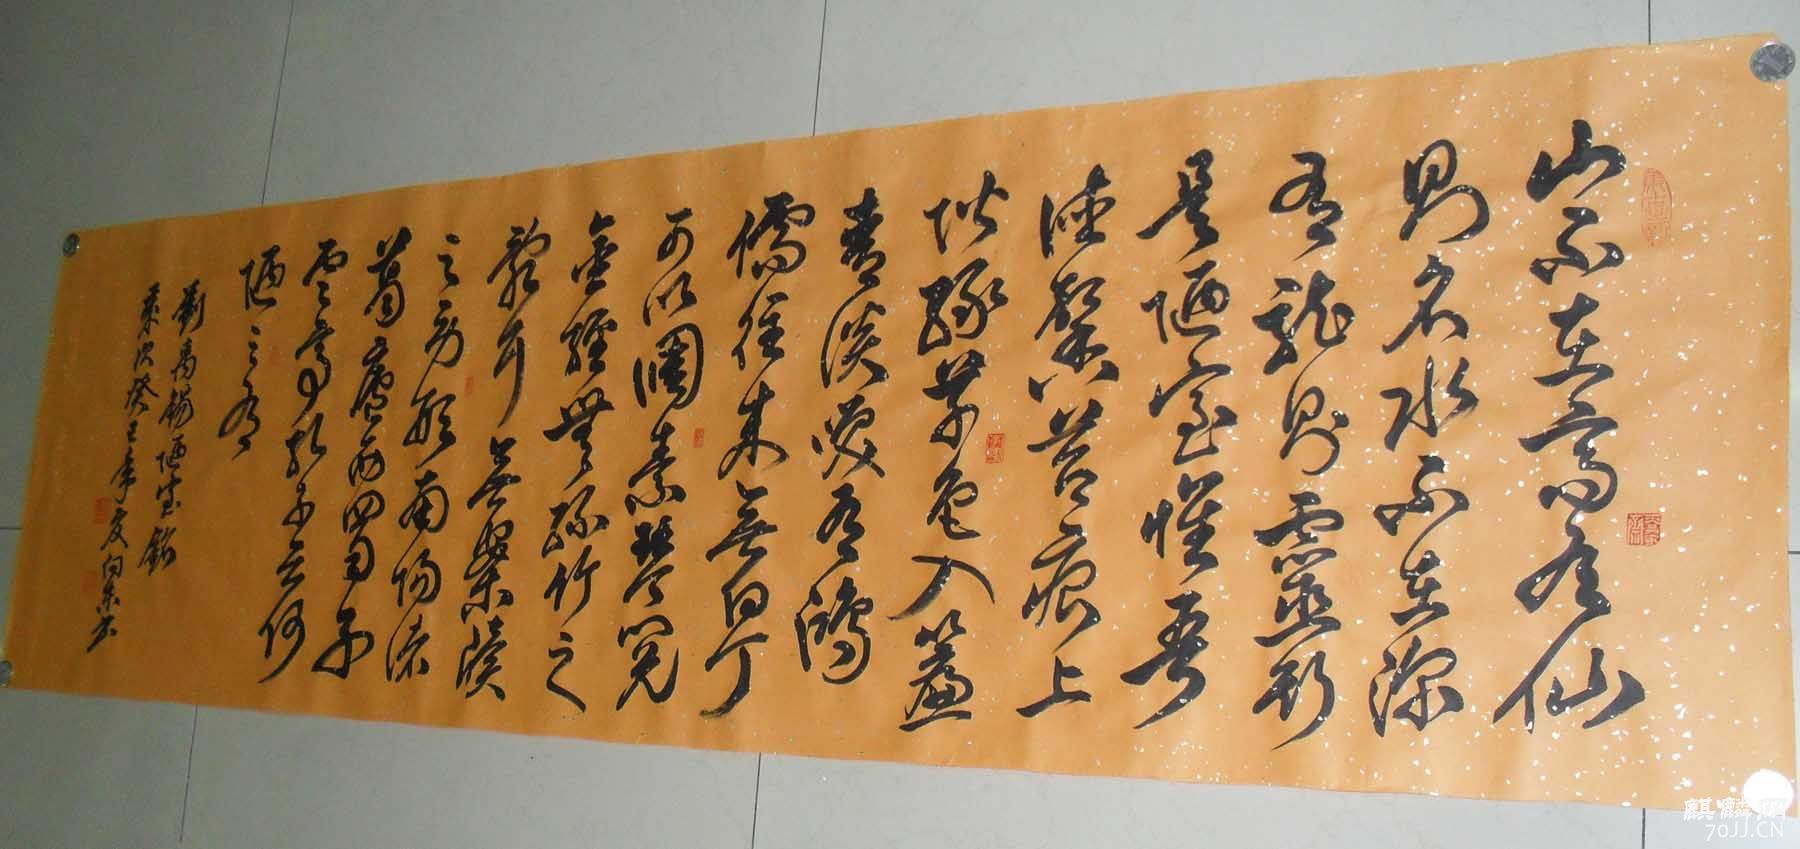 山不在高有仙
则名水不在深
有龍则靈斯
是陋室惟吾
德馨苔痕上
阶綠草色入簾
青談笑有鴻
儒往来無白丁
可以調素琴閱
金經無絲竹之
亂耳無案牘
之勞形南陽诸
葛廬西蜀子
雲亭孔子云何
陋之有
劉禹錫陋室銘
歲次癸巳年夏向东书
麒麟
70JJ.CN